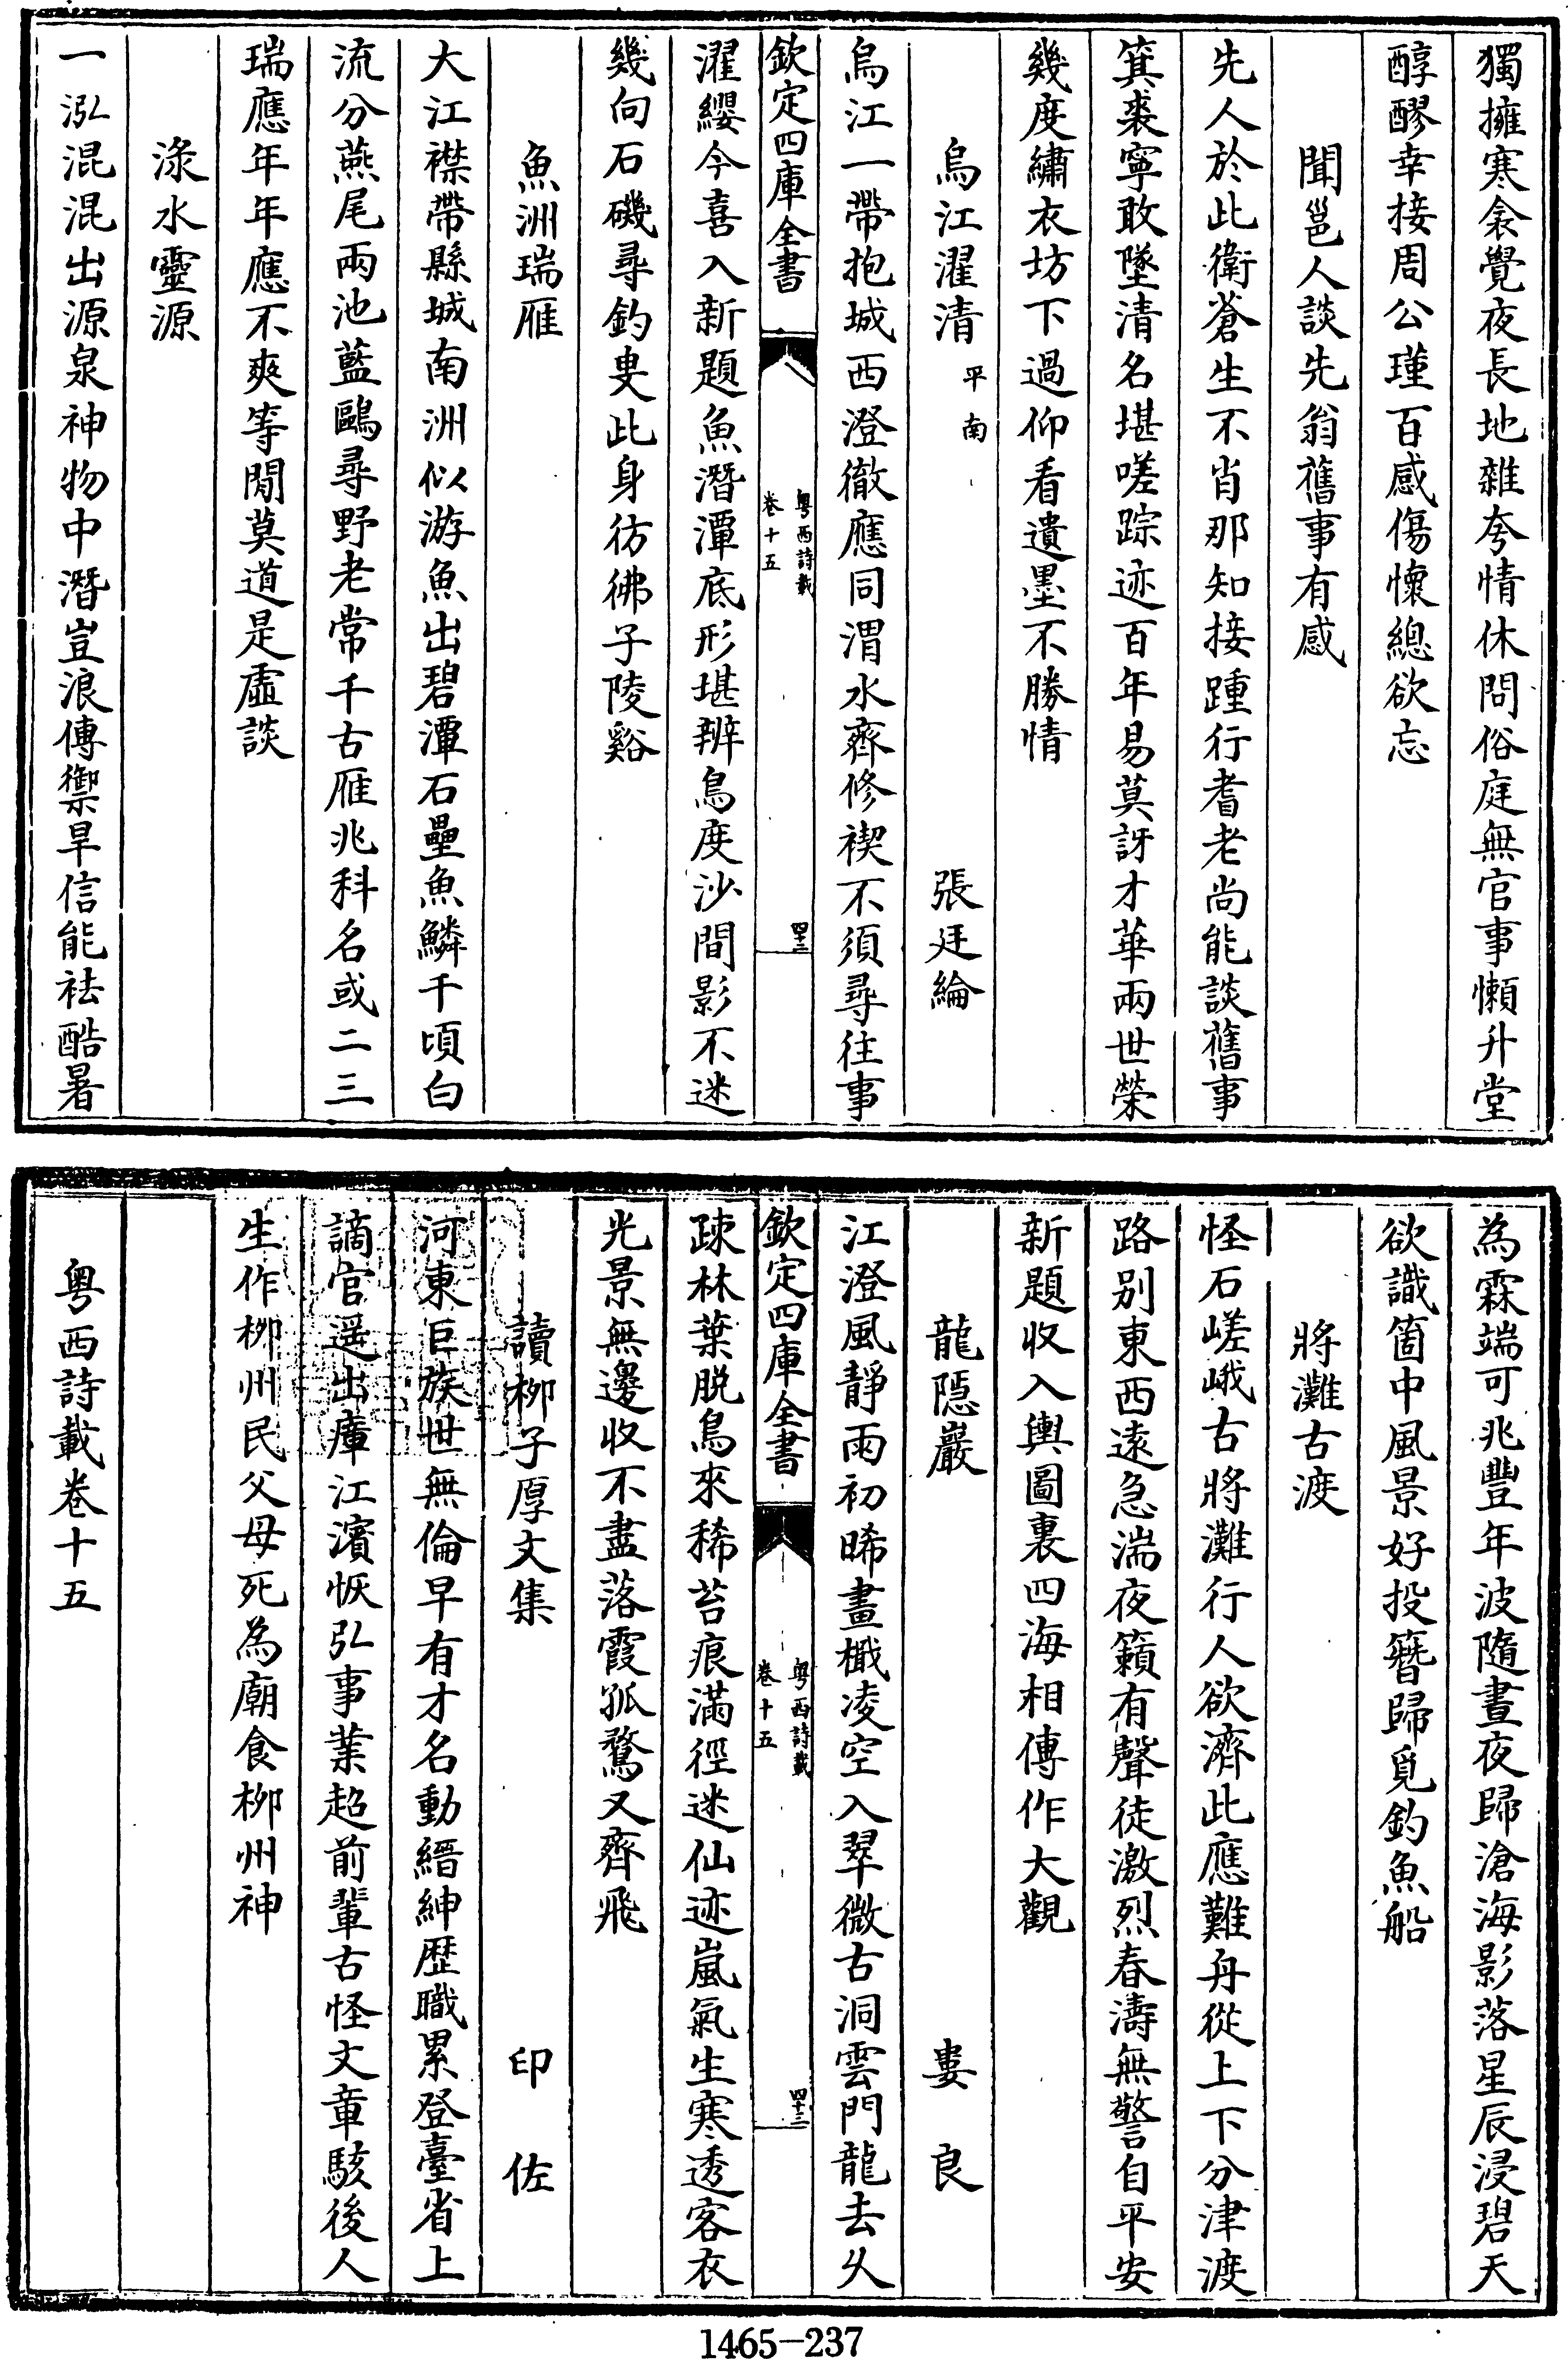 獨擁寒衾覺夜長地雜夸情休問俗庭無官事懶升堂
醇醪幸接周公瑾百感傷懷總欲忘
聞邕人談先翁舊事有感
先人於此衛蒼生不肖那知接踵行耆老尚能談舊事
箕裘寧敢墜清名堪嗟踪迹百年易莫訝才華兩世榮
幾度繡衣坊下過仰看遺墨不勝情
烏江濯清 平南 張廷綸
烏江一帶抱城西澄徹應同渭水齊修禊不須尋往事
欽定四庫全書 粤西詩載 卷十五 四十二
濯纓今喜入新題魚潛潭底形堪辨鳥度沙間影不迷
幾向石磯尋釣叟此身彷彿子陵谿
魚洲瑞雁
大江襟帶縣城南洲似游魚出碧潭石壘魚鱗千頃白
流分燕尾兩池藍鷗尋野老常千古雁兆科名或二三
瑞應年年應不爽等閒莫道是虛談
淥水靈源
一泓混混出源泉神物中潛豈浪傳禦旱信能祛酷暑
為霖端可兆豐年波隨晝夜歸滄海影落星辰浸碧天
欲識箇中風景好投簪歸覓釣魚船
將灘古渡
怪石嵯峨古將灘行人欲濟此應難舟從上下分津渡
路別東西遠急湍夜籟有聲徒激烈春濤無警自平安
新題收入輿圖裏四海相傳作大觀
龍隱巖 婁良
江澄風靜雨初晞畫檝凌空入翠微古洞雲門龍去久
欽定四庫全書 粤西詩載 卷十五 四十三
疎林葉脱鳥來稀苔痕滿徑迷仙迹嵐氣生寒透客衣
光景無邊收不盡落霞孤鶩又齊飛
讀柳子厚文集 印佐
河東巨族世無倫早有才名動縉紳歴職累登臺省上
謫官遥出瘴江濱恢弘事業超前輩古怪文章駭後人
生作柳州民父母死為廟食柳州神
粤西詩載卷十五
1465-237